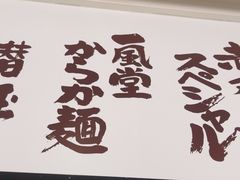 スペシャル
一風堂
からか麺
替玉